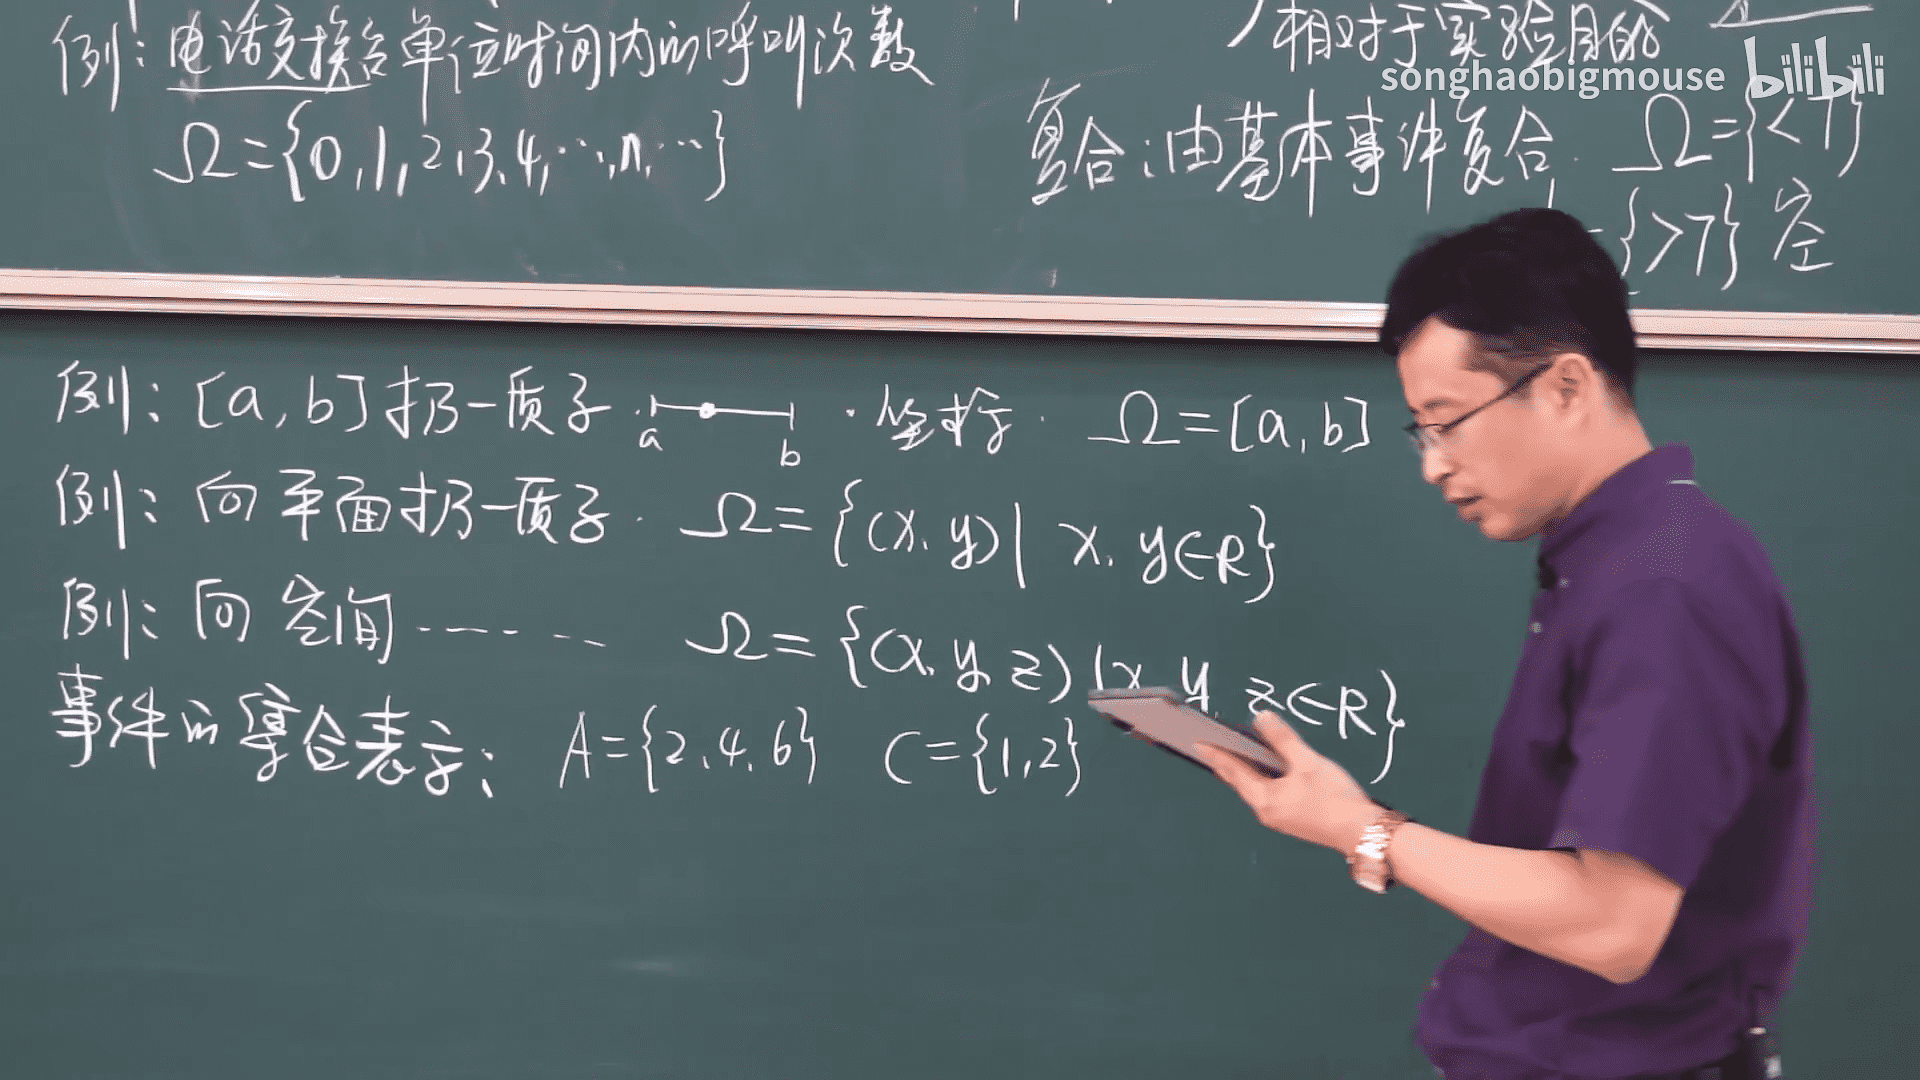 例：电话交换台单位时间内的呼叫次数
Ω={0,1,2,3,4,…,n,…}
相对于实验目的
songhaobigmouse bilibili
复合：由基本事件复合. Ω={<7}
={>7} 空
例：[a,b]扔一质子. a b ·坐标· Ω=[a,b]
例：向平面扔一质子. Ω={(x,y)| x,y∈R}
例：向空间······ Ω={(x,y,z)|x,y,z∈R}
事件的集合表示： A={2,4,6} C={1,2}